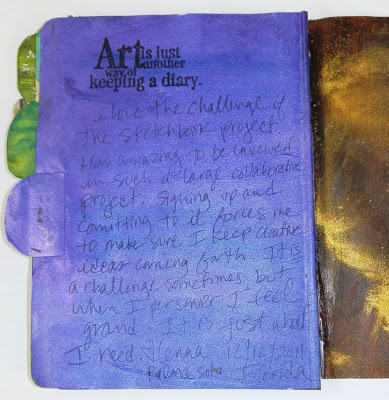 Art is just
another
way of
keeping a diary.
i love the challenge of
the sketchbook project
How amazing to be involved
in such a large collaborative
project. Signing up and
comitting to it forces me
to make sure I keep creative
ideas coming forth. It is
a challenge sometimes, but
when I persever I feel
grand. It is just what
I need. 12/12/2011
Florida